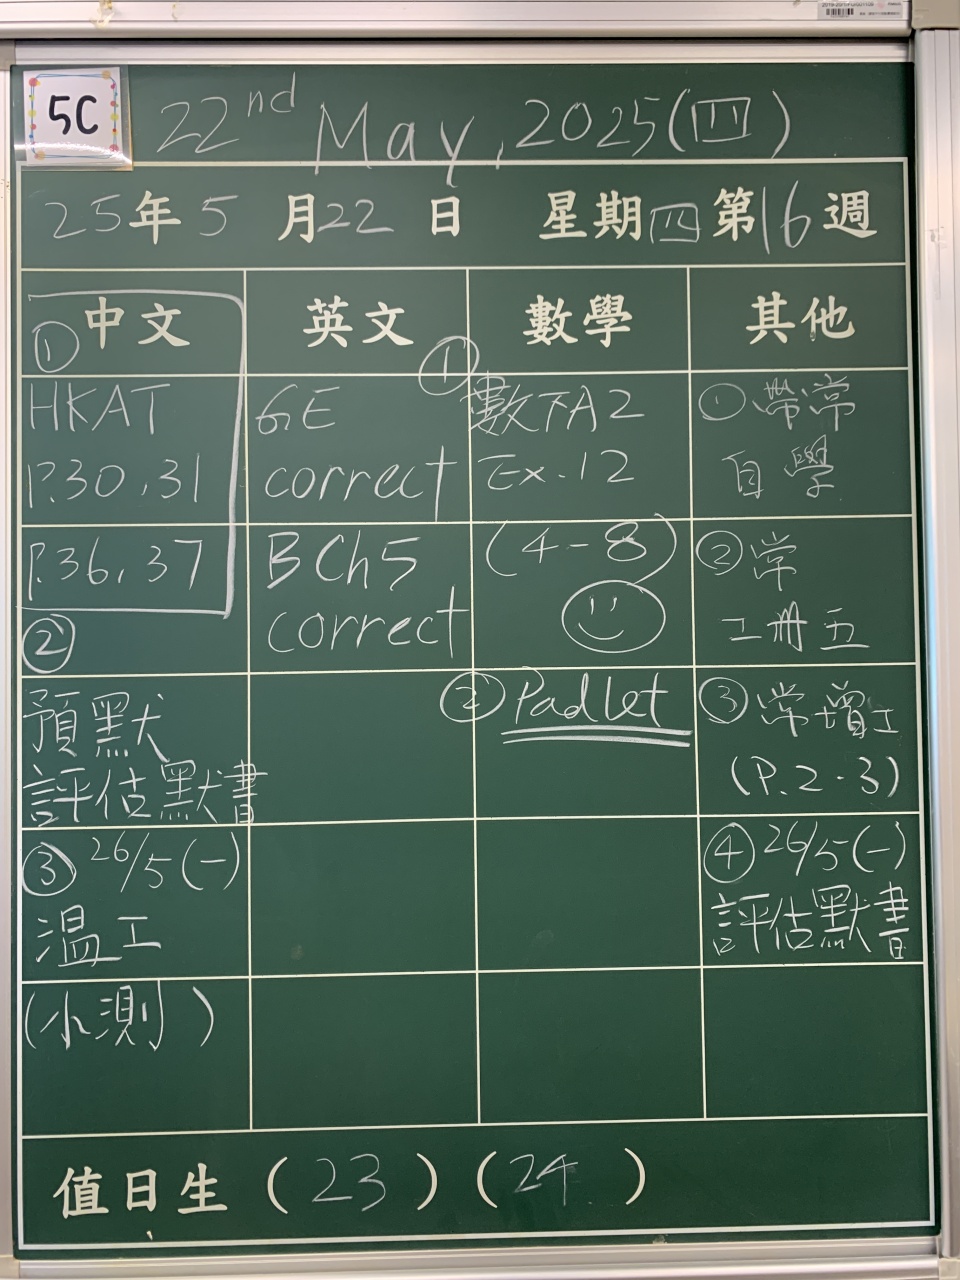 5C
22nd May, 2025(四)
25年5月22日 星期四第16週
中文
①
HKAT
P.30,31
P.36,37
②
預默
評估默書
③ 26/5(一)
溫工
(小測)
英文
GE
correct
BCh5
correct
數學
①
數下A2
Ex.12
(4-8)
② Padlet
其他
① 帶常
自學
② 常
工冊五
③ 常增工
(P.2-3)
④ 26/5(一)
評估默書
值日生(23)(24)